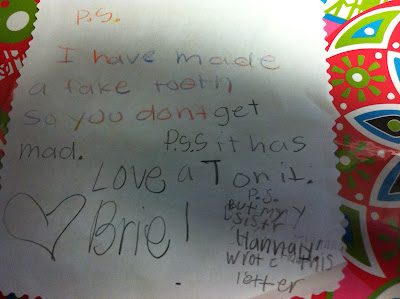 P.S.
I have made
a fake tooth
so you dont get
mad. P.S.S it has
Love a T on it.
Brie!
P.S.
But my
sistr
Hannah
wrote this
letter